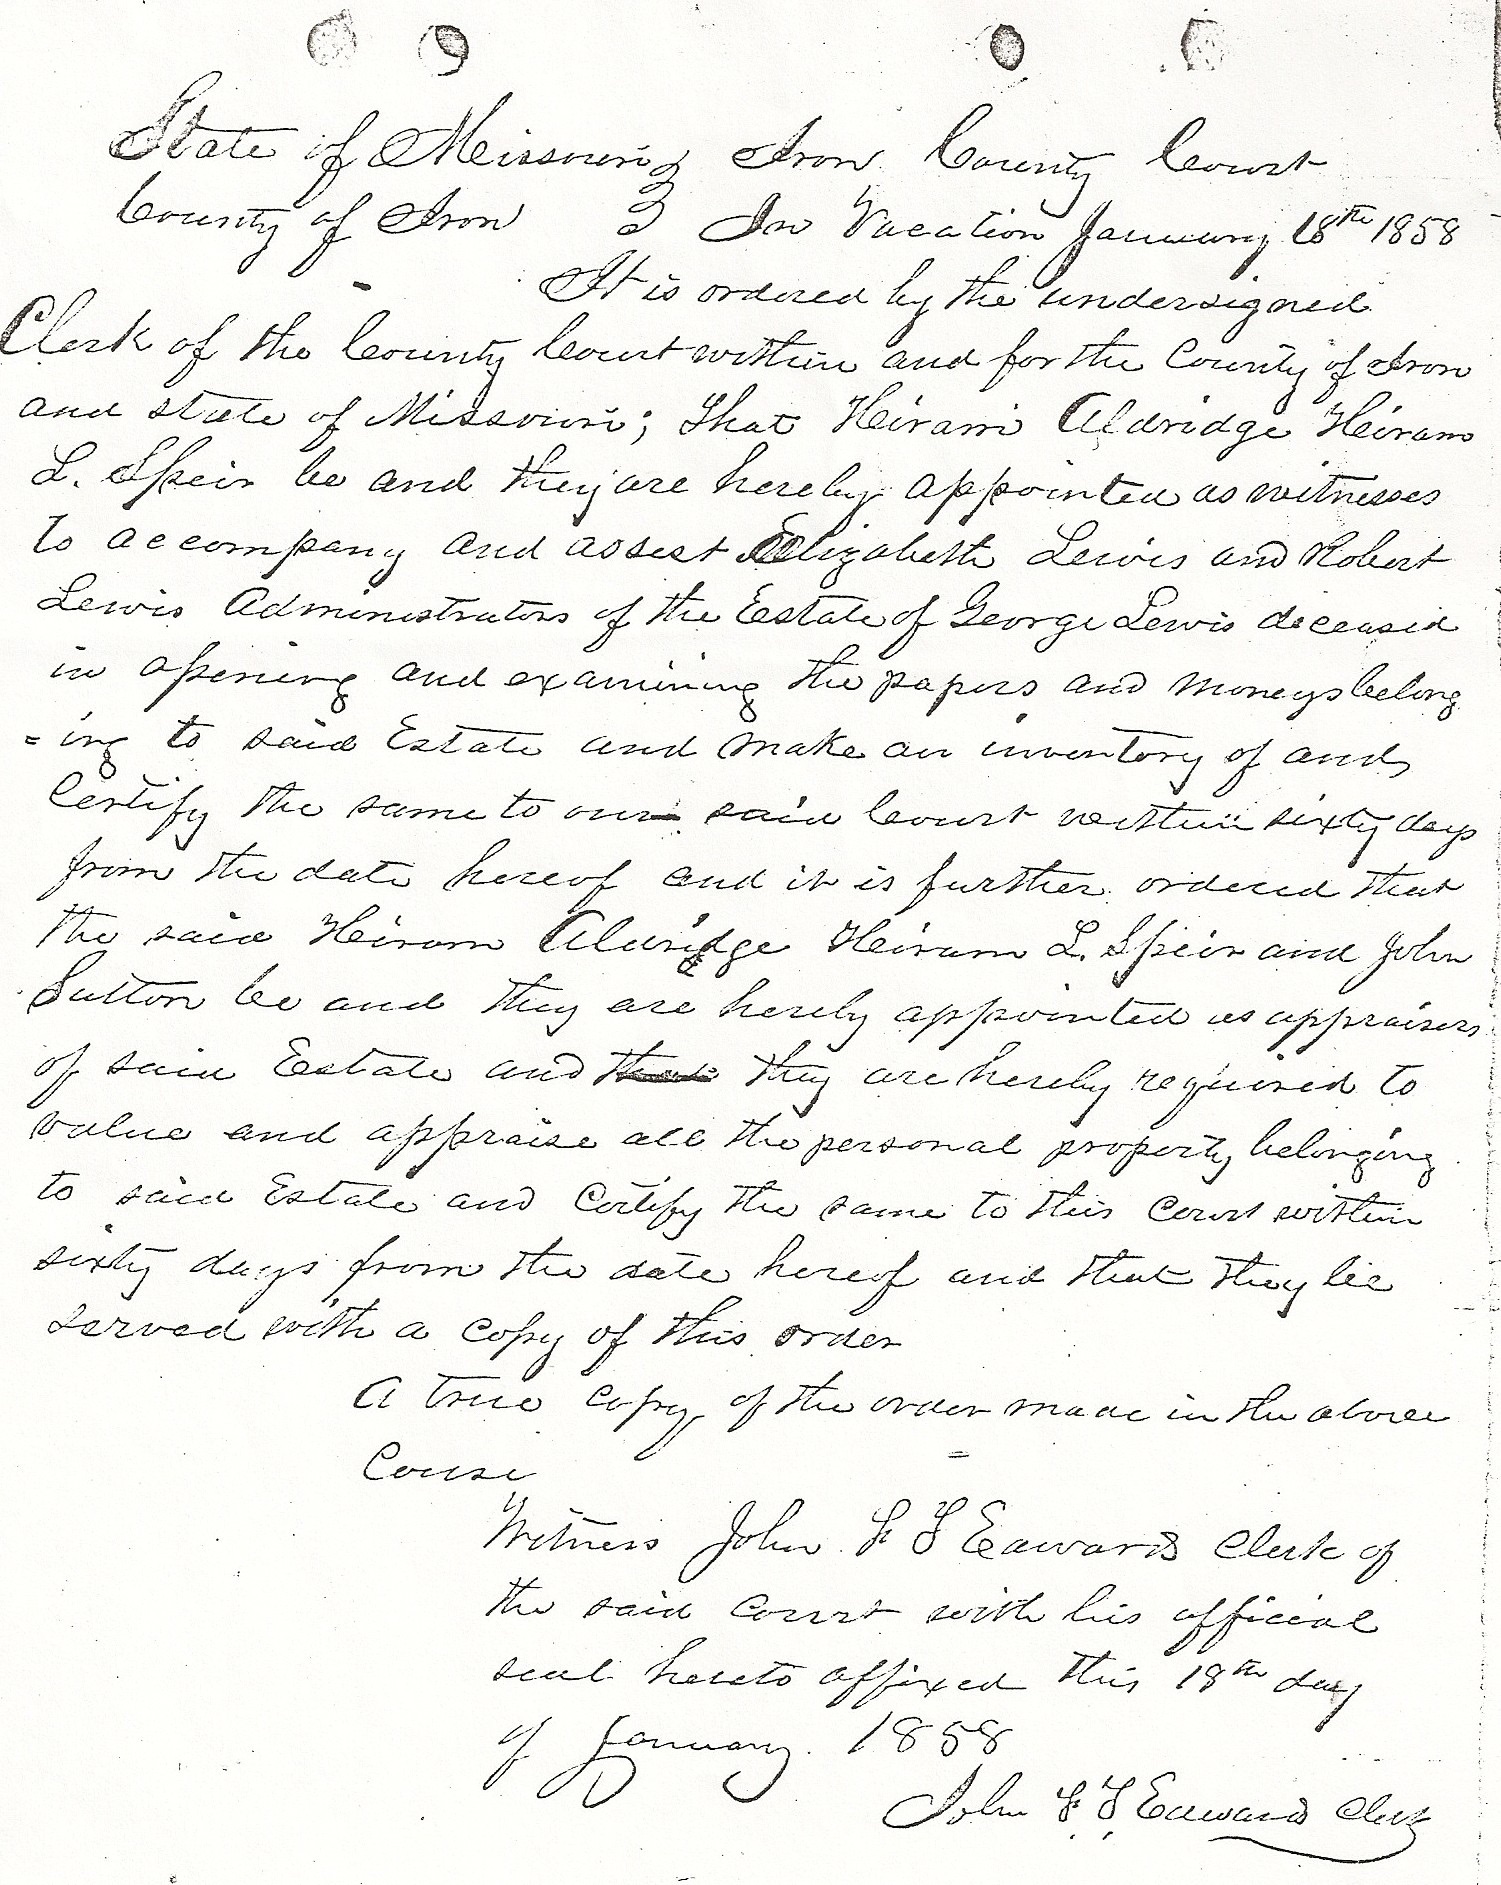 State of Missouri } Iron County Court
County of Iron } In Vacation January 18th 1858
It is ordered by the undersigned
Clerk of the County Court within and for the County of Iron
and state of Missouri; That Heiram Aldridge Heiram
L. Speir be and they are hereby appointed as witnesses
to accompany and assist Elizabeth Lewis and Robert
Lewis Administrators of the Estate of George Lewis deceased
in opening and examining the papers and moneys belong
=ing to said Estate and make an inventory of and
Certify the same to our said Court within sixty days
from the date hereof and it is further ordered that
the said Heiram Aldridge Heiram L. Speir and John
Sutton be and they are hereby appointed as appraisers
of said Estate and they are hereby required to
value and appraise all the personal property belonging
to said Estate and Certify the same to this Court within
sixty days from the date hereof and that they be
served with a copy of this order
A true copy of the order made in the above
Couse
Witness John F. T. Edwards Clerk of
the said Court with his official
seal hereto affixed this 18th day
of January 1858
John F. T. Edwards Clerk